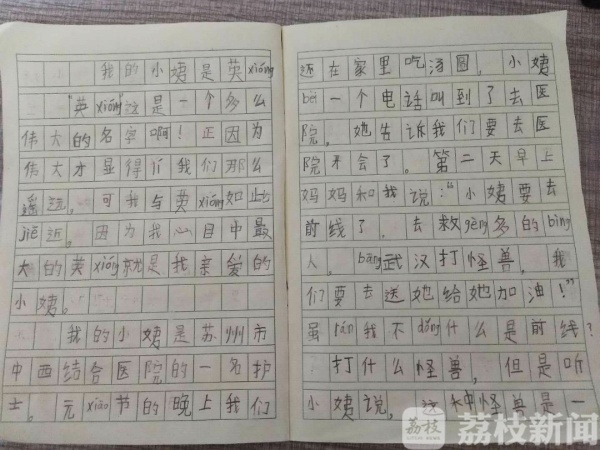 我的小姨是英xióng
"英xióng"这是一个多么
伟大的名字啊！正因为
伟大才显得们我们那么
遥远。可我与英xióng如此
jiē近。因为我心目中最
大的英xióng就是我亲爱的
小姨。
我的小姨是苏州市
中西结合医院的一名护
士。元xiāo节的晚上我们
还在家里吃汤圆，小姨
bèi一个电话叫到了去医
院。她告诉我们要去医
院开会了。第二天早上
妈妈和我说："小姨要去
前线了，去救gèng多的bìng
人，bāng武汉打怪兽，我
们要去送她给她加油！"
虽rán我不dǒng什么是前线？
打什么怪兽，但是听
小姨说，这种怪兽是一
荔枝
荔枝新闻